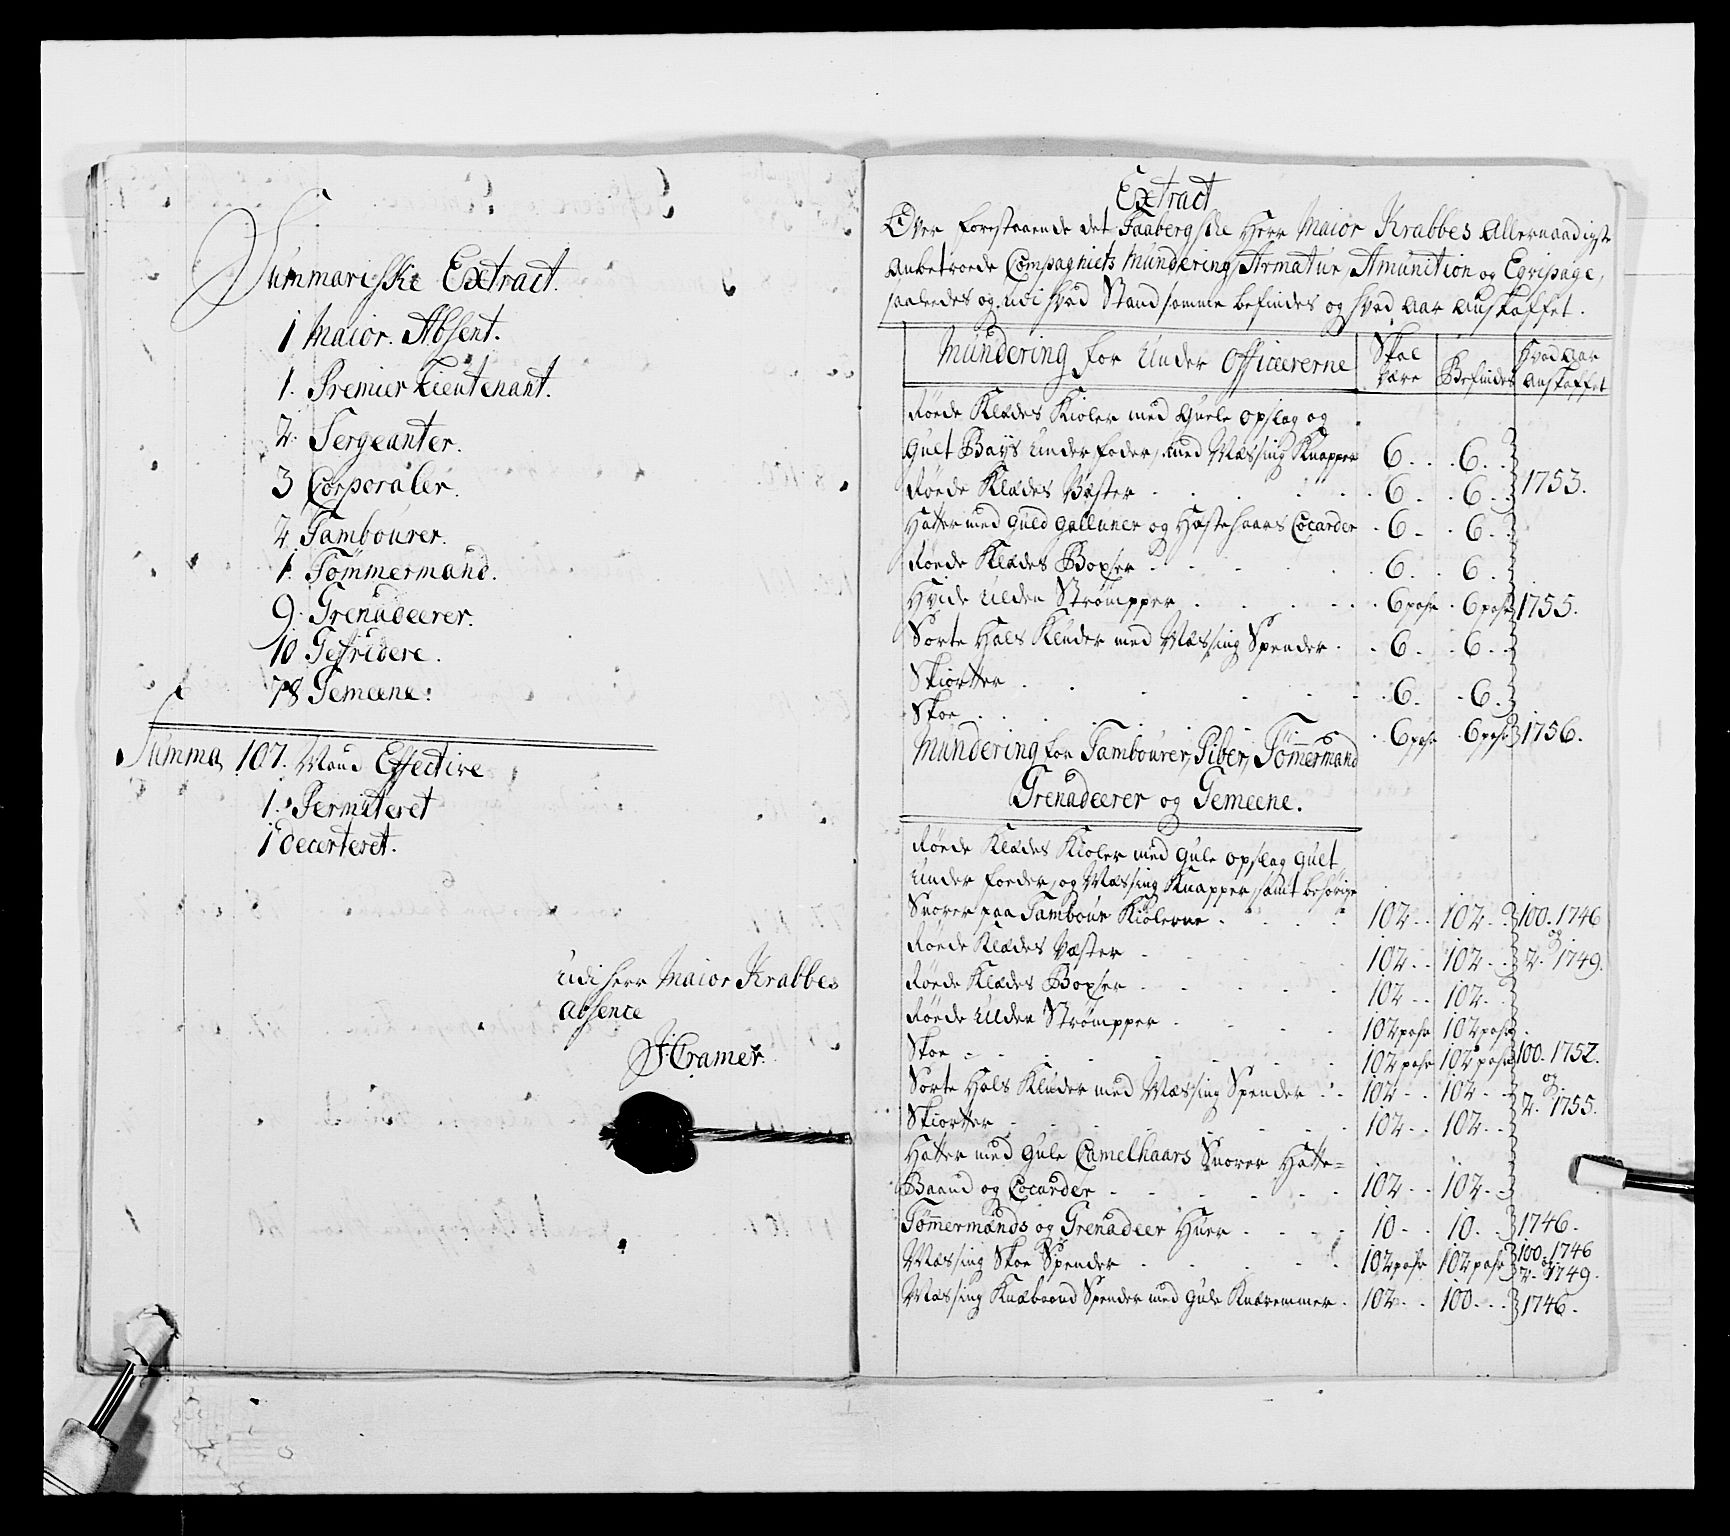 Summariske Extract.
1 Maior. Absent.
1. Premier Lieutenant.
2. Sergeanter.
3 Corporaler.
2 Tambourer.
1. Tømmermand.
9. Grenadeerer.
10 Gefridere.
78 Gemeene.
Summa 107. Mand Effective
1. Permiteret
1 decerteret.
Udi Herr Maior Krabbes
Absence
J Cramer.
Extract
Over forestaaende det Faabergske Herr Maior Krabbes Allernaadigste
Anbetroede Compagniets Mundering, Armatur, Amunition og Eqvipage,
saaledes og udi hvad Stand samme befindes og hvad Aar Anskaffet.
Mundering for Under Officererne
Skal være
Befindes
Hvad Aar Anskaffet
Røede Klædes Kioler med Guele Opslag og
Guelt Bays Underfoder, med Mæssing Knapper 6. 6.
Røede Klædes Væster 6. 6. 1753.
Hatter med Guld Galluner og Hæstehaars Cocarder 6. 6.
Røede Klædes Boxser 6. 6.
Hvide Ulden Strømpper 6 pahr 6 pahr 1755.
Sorte Hals Kluder med Mæssing Spender 6. 6.
Skiortter 6. 6.
Skoe 6 pahr 6 pahr 1756.
Mundering for Tambourer, Piber, Tømmermand
Grenadeerer og Gemeene.
Røede Klædes Kioler med Gule Opslag Guelt
Under foeder, og Mæssing Knapper, samt behørige
Snorer paa Tambour Kiolerne 102 102 100. 1746
og
Røede Klædes Væster 102 102 2. 1749.
Røede Klædes Boxser 102 102
Røede Ulden Strømpper 102 pahr 102 pahr
Skoe 102 pahr 102 pahr 100. 1752.
og
Sorte Hals Kluder med Mæssing Spender 102 102 2. 1755.
Skiortter 102 102
Hatter med Gule Camelhaars Snorer Hatte=
Baand og Cocarder 102 102
Tømmermands og Grenadeer Huer 10 10 1746.
Mæssing Skoe Spender 102 pahr 102 pahr 100. 1746
og 2. 1749.
Mæssing Knæbaand Spender med Gule Knæremmer 102 100 1746.